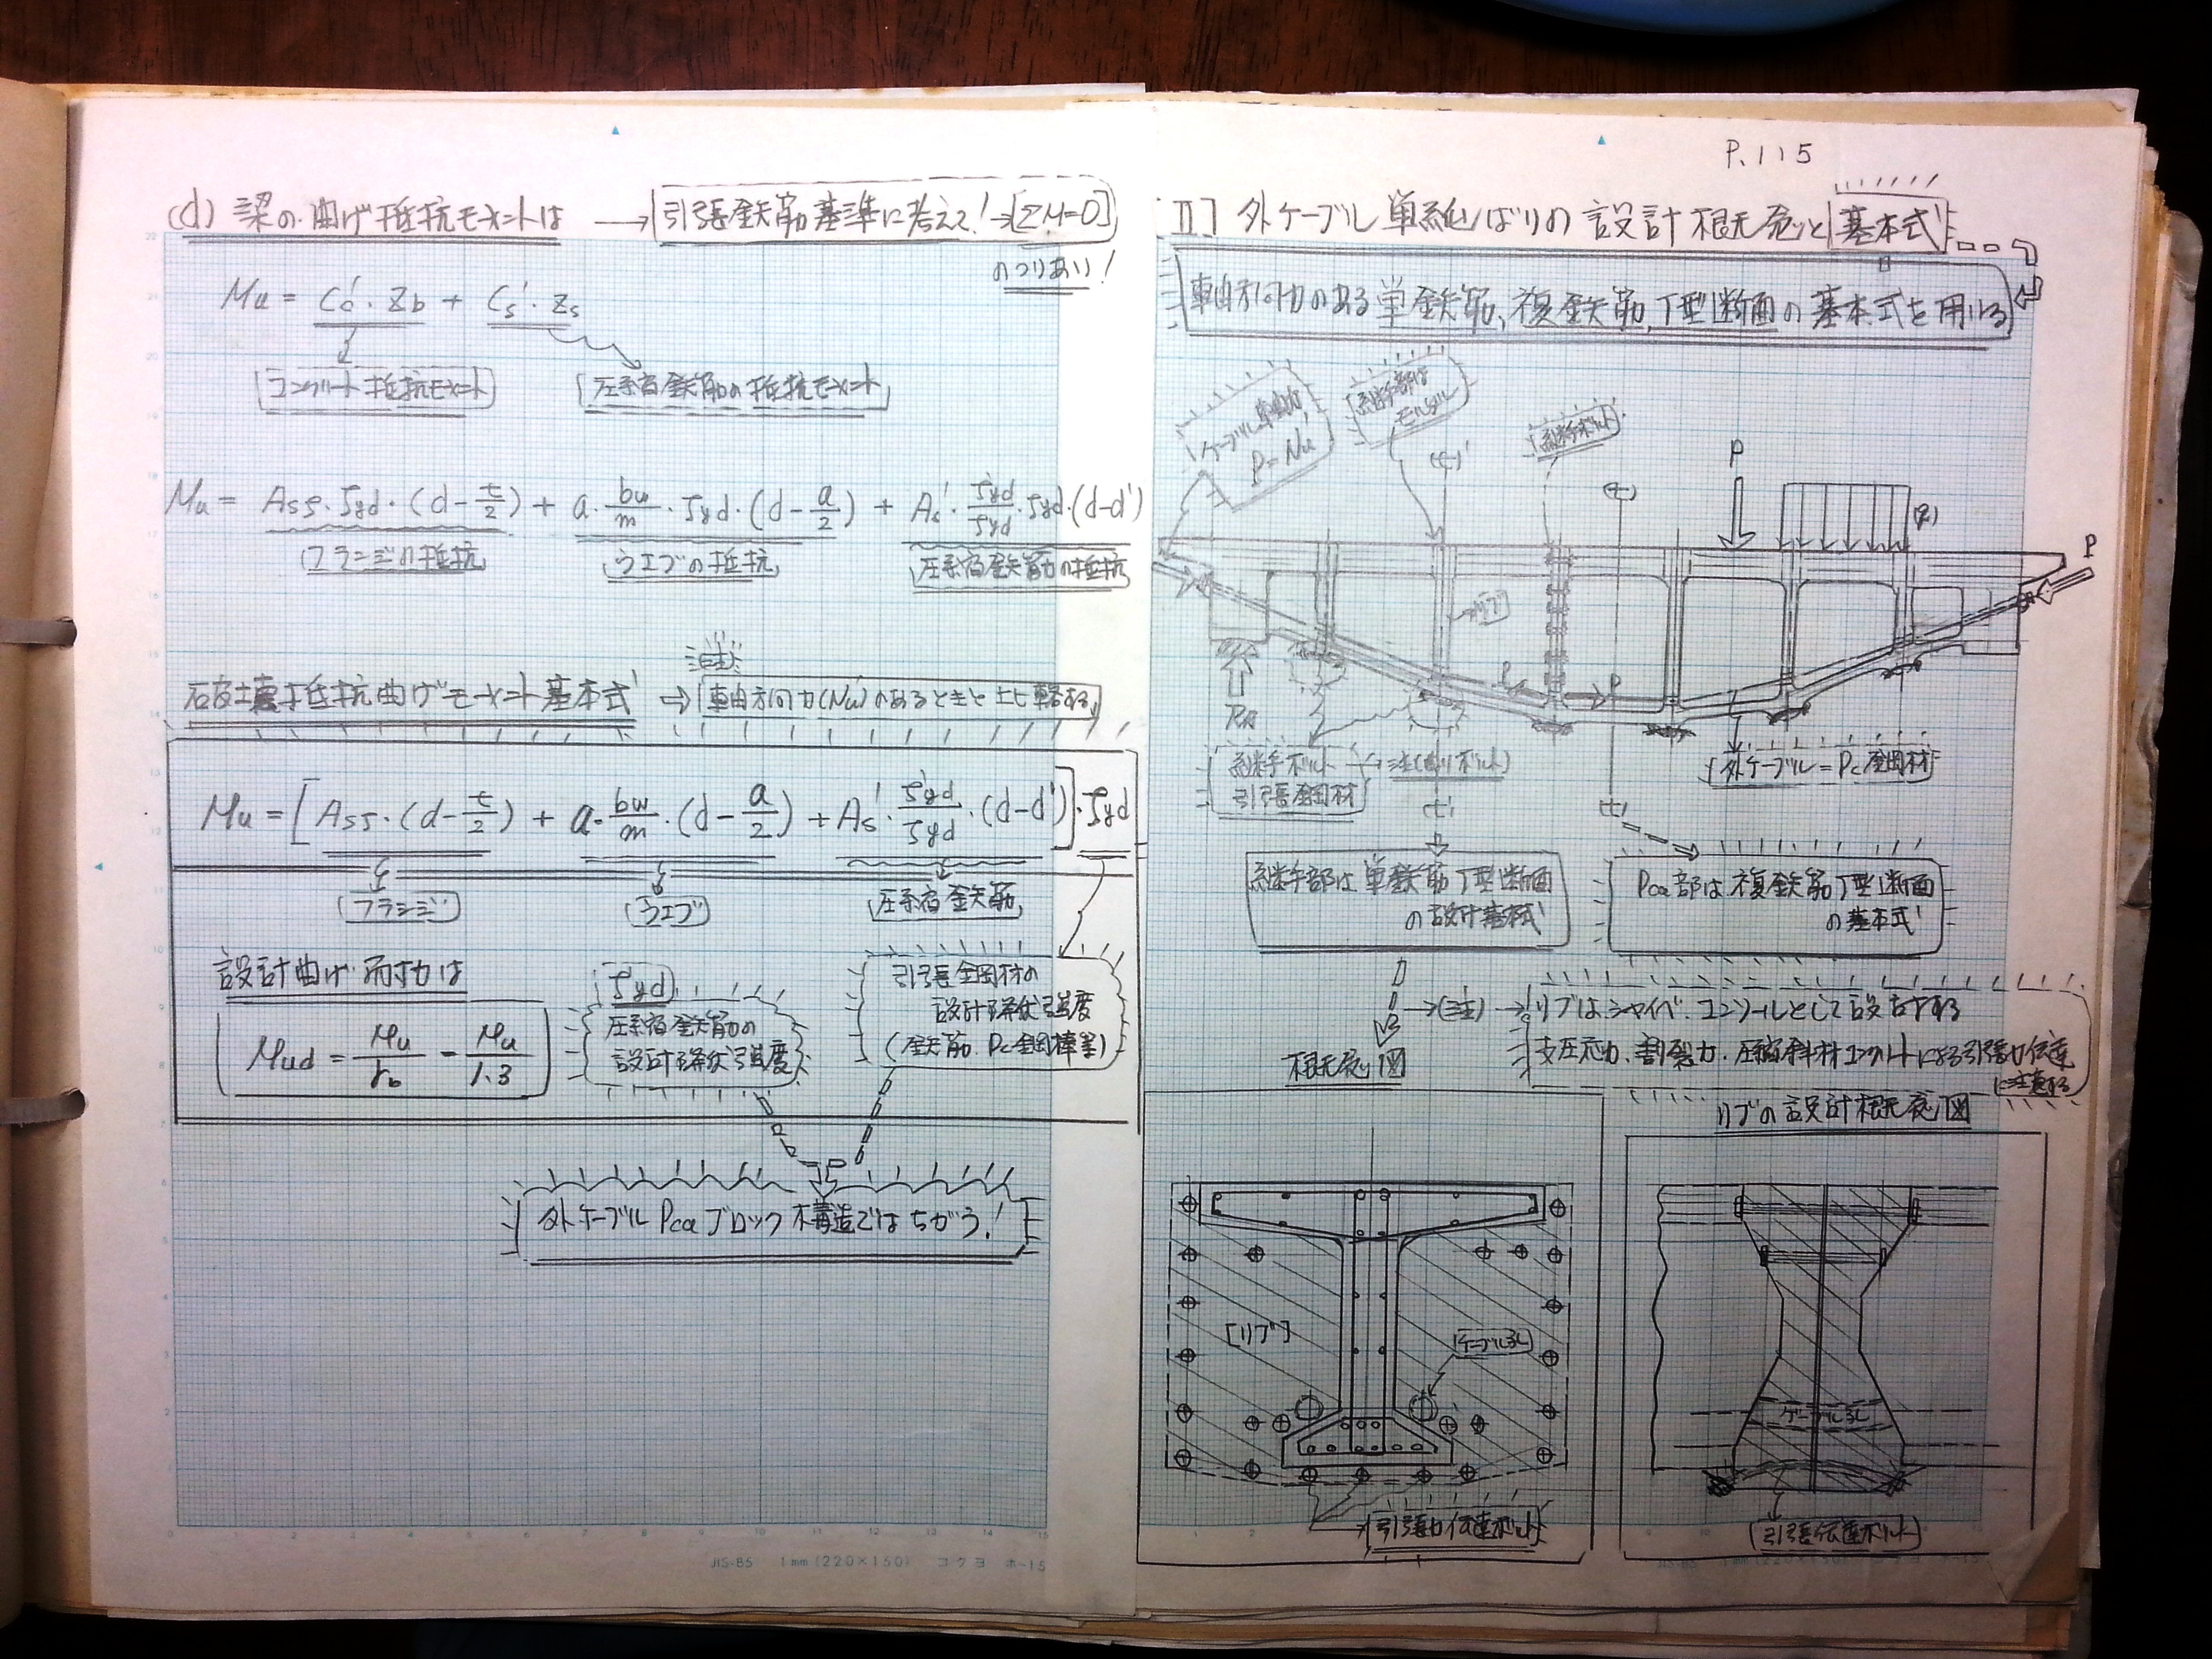 (d) 梁の曲げ抵抗モーメントは → 引張鉄筋基準に考えて!→[ΣM=0]
のつりあい!
Mu = Cc'・Zb + Cs'・Zs
コンクリート抵抗モーメント
圧縮鉄筋の抵抗モーメント
Mu = Asf・fyd・(d-t/2) + a・bw/m・fyd・(d-a/2) + As'・f'yd/fyd・fyd・(d-d')
フランジの抵抗
ウエブの抵抗
圧縮鉄筋の抵抗
(注)
破壊抵抗曲げモーメント基本式 → 軸方向力(Nu')のあるときと比較する
Mu = [Asf・(d-t/2) + a・bw/m・(d-a/2) + As'・f'yd/fyd・(d-d')]・fyd
フランジ
ウエブ
圧縮鉄筋
設計曲げ耐力は
Mud = Mu/rb = Mu/1.3
f'yd
圧縮鉄筋の
設計降伏強度
引張鋼材の
設計降伏強度
(鉄筋、PC鋼棒等)
外ケーブルPcaブロック構造ではちがう!
JIS-B5 1mm(220×150) コクヨ ホ-15
P.115
[Ⅱ] 外ケーブル単純ばりの設計概念と基本式
軸方向力のある単鉄筋、複鉄筋、T型断面の基本式を用いる
ケーブル軸力
P=Nu'
継手部は
モルタル
継手ボルト
(t)'
(t)
P
(q)
P
リブ
P
P
RA
継手ボルト
引張鋼材
外ケーブル=Pc鋼材
(t)'
(t)
継手部は単鉄筋T型断面
の設計基本式
Pca部は複鉄筋T型断面
の基本式
→(注)→リブはシャイベ.コンソールとして設計する
支圧応力、割裂力、圧縮斜材コンクリートによる引張力伝達
に注意する
概念図
リブの設計概念図
[リブ]
ケーブル孔
引張力伝達ボルト
ケーブル孔
(引張伝達ボルト)